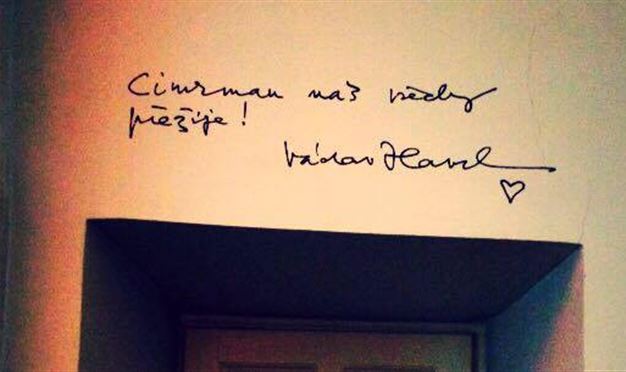 Cimrman nás vždy
přežije!
Václav Havel